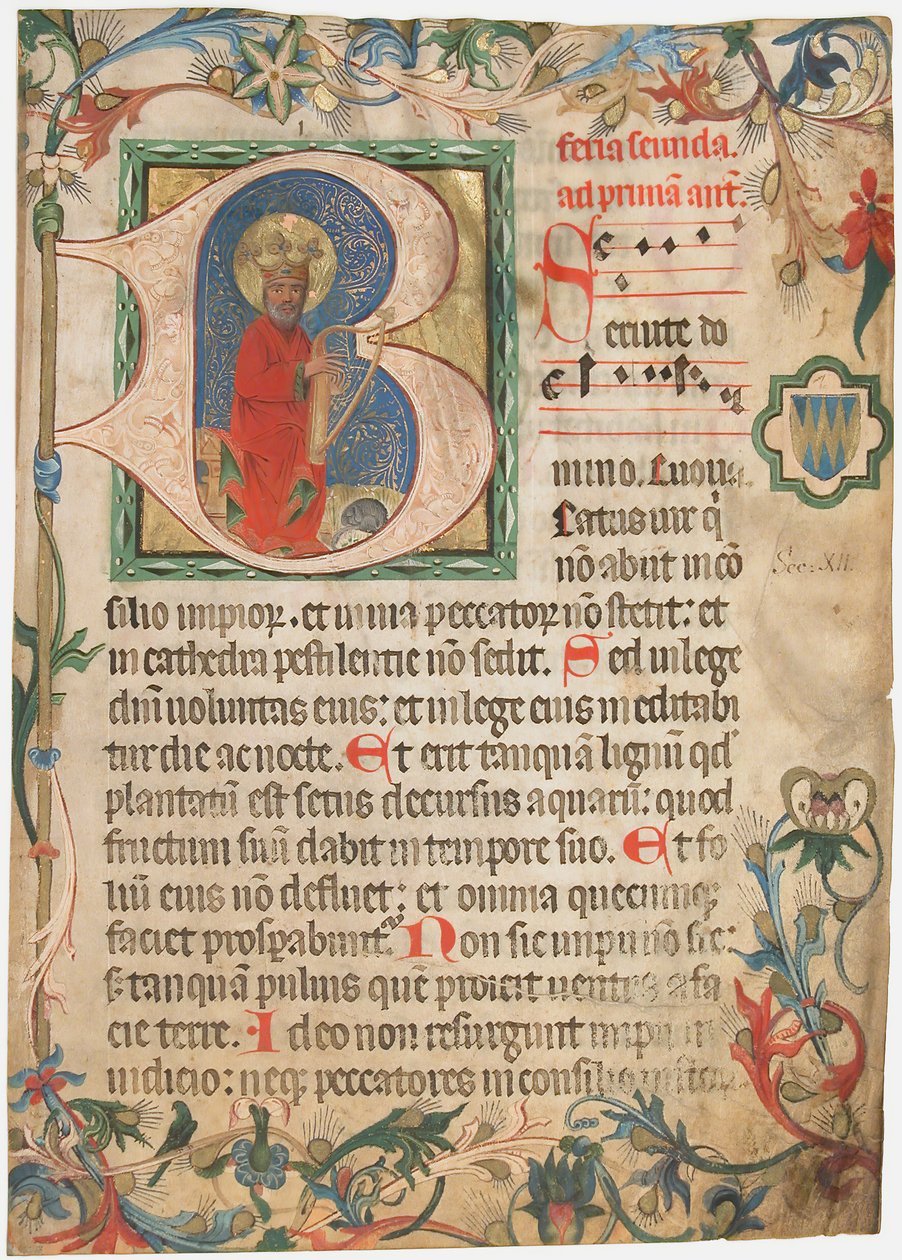 feria secunda.
ad primā ant̄.
Seruite do
mino. Euoua.
Beatus uir qͥ
nō abiit in cō
Sec: XII.
silio impioꝝ. et in uia peccatoꝝ nō stetit: et
in cathedra pestilentie nō sedit. Sed in lege
dn̄i uoluntas eius: et in lege eius meditabi
tur die ac nocte. Et erit tanquā lignū qd̓
plantatū est secus decursus aquarū: quod
fructum suū dabit in tempore suo. Et fo
liū eius nō defluet: et omnia quecumqꝫ
faciet prosꝑabunt᷑. Non sic impii nō sic:
sꝫ tanquā puluis quē proicit uentus a fa
cie terre. Ideo non resurgunt impii in
iudicio: neqꝫ peccatores in consilio